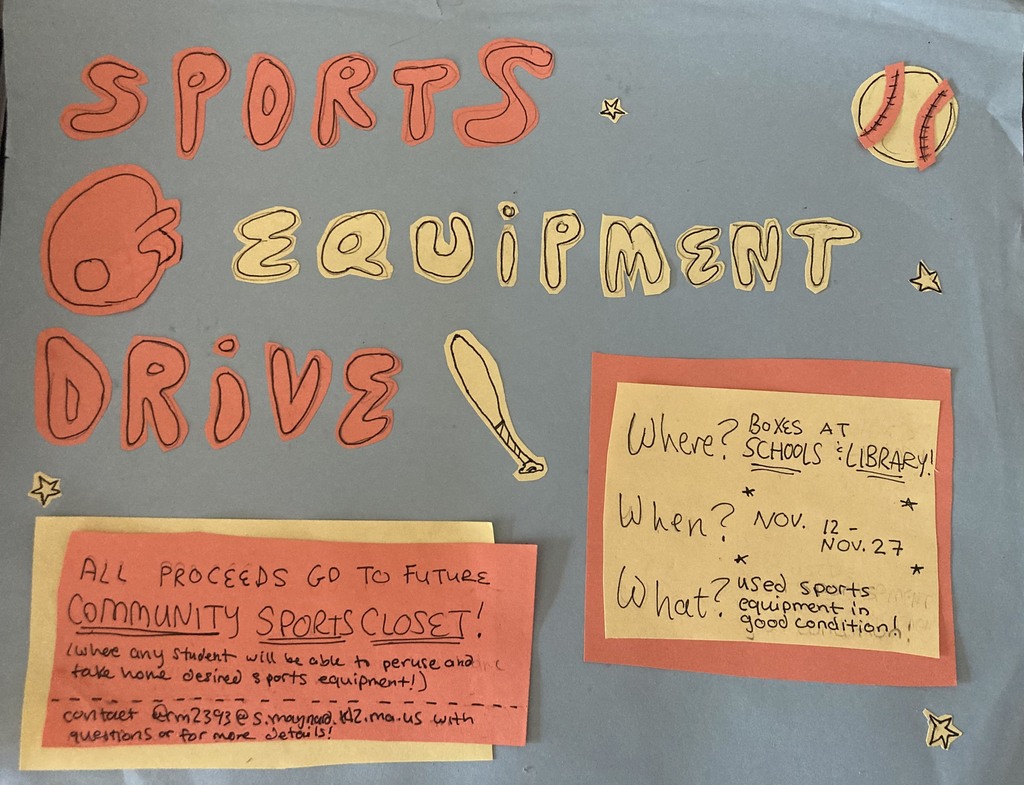 SPORTS
EQUIPMENT
DRIVE
Where? BOXES AT
SCHOOLS & LIBRARY!
When? NOV. 12 -
NOV. 27
What? used sports
equipment in
good condition!
ALL PROCEEDS GO TO FUTURE
COMMUNITY SPORTS CLOSET!
(where any student will be able to peruse and
take home desired sports equipment!)
contact @rm2393@s.maynard.k12.ma.us with
questions or for more details!